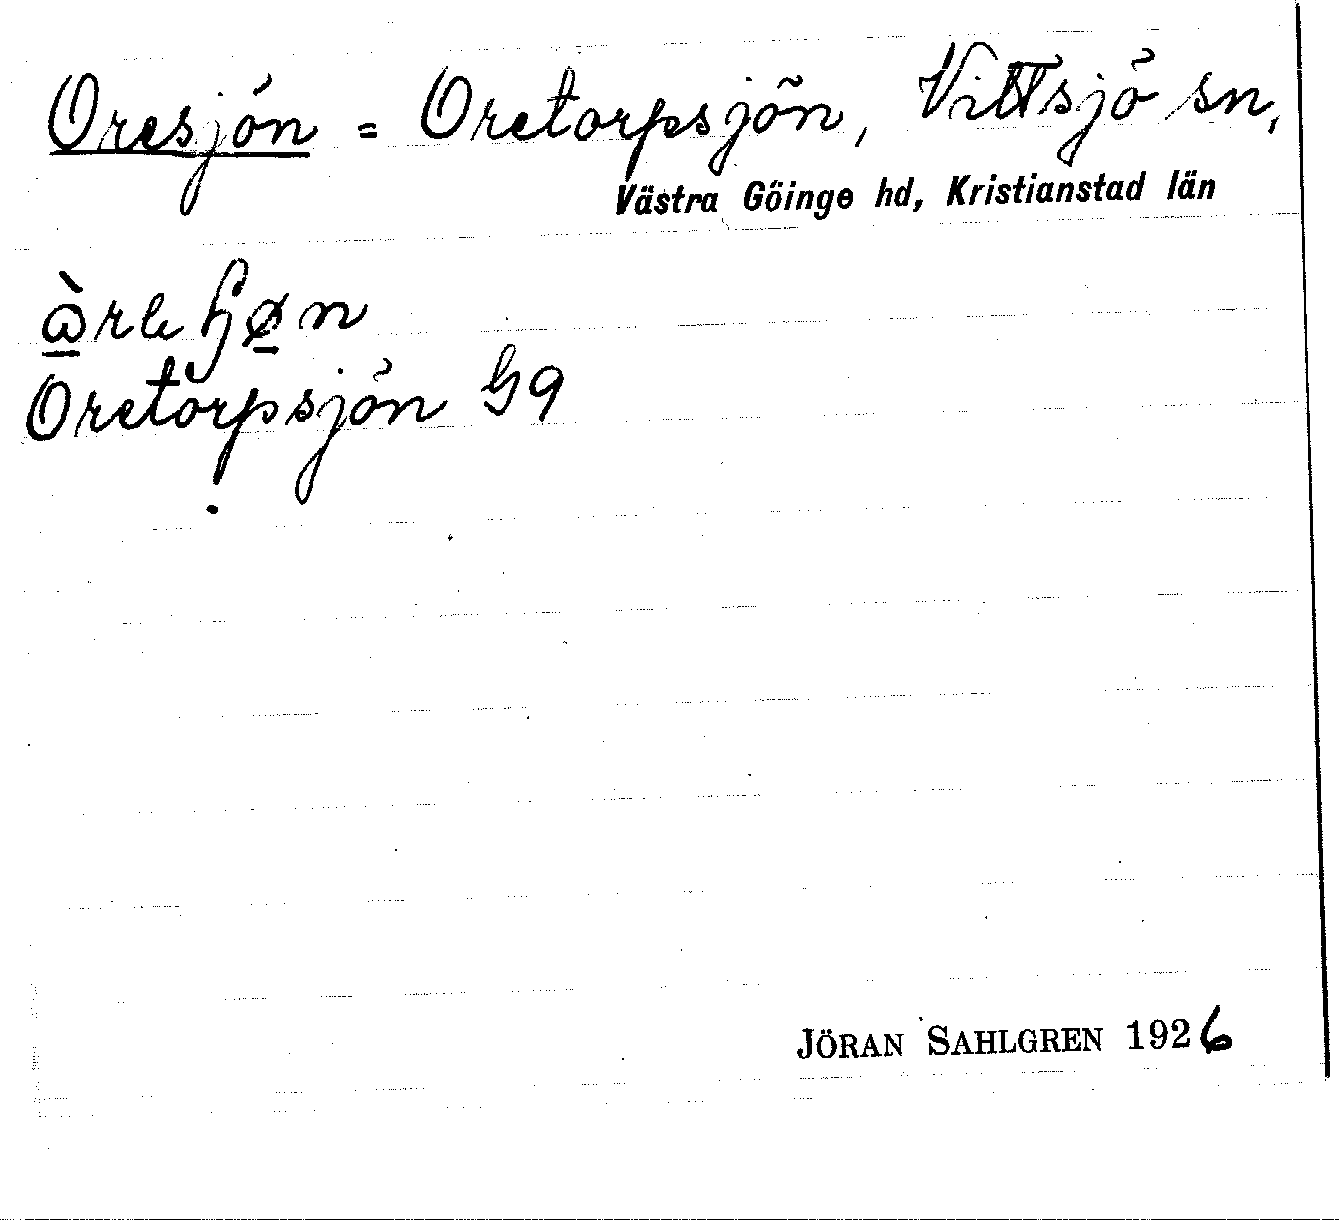 Oresjön = Oretorpsjön, Vittsjö sn,
Västra Göinge hd, Kristianstad län
Oretorpsjön G9
JÖRAN SAHLGREN 1926